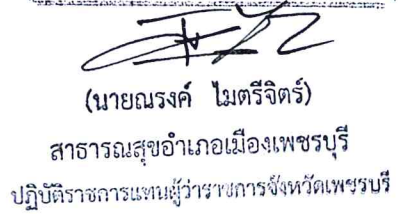 (นายณรงค์ ไมตรีจิตร์)
สาธารณสุขอำเภอเมืองเพชรบุรี
ปฏิบัติราชการแทนผู้ว่าราชการจังหวัดเพชรบุรี